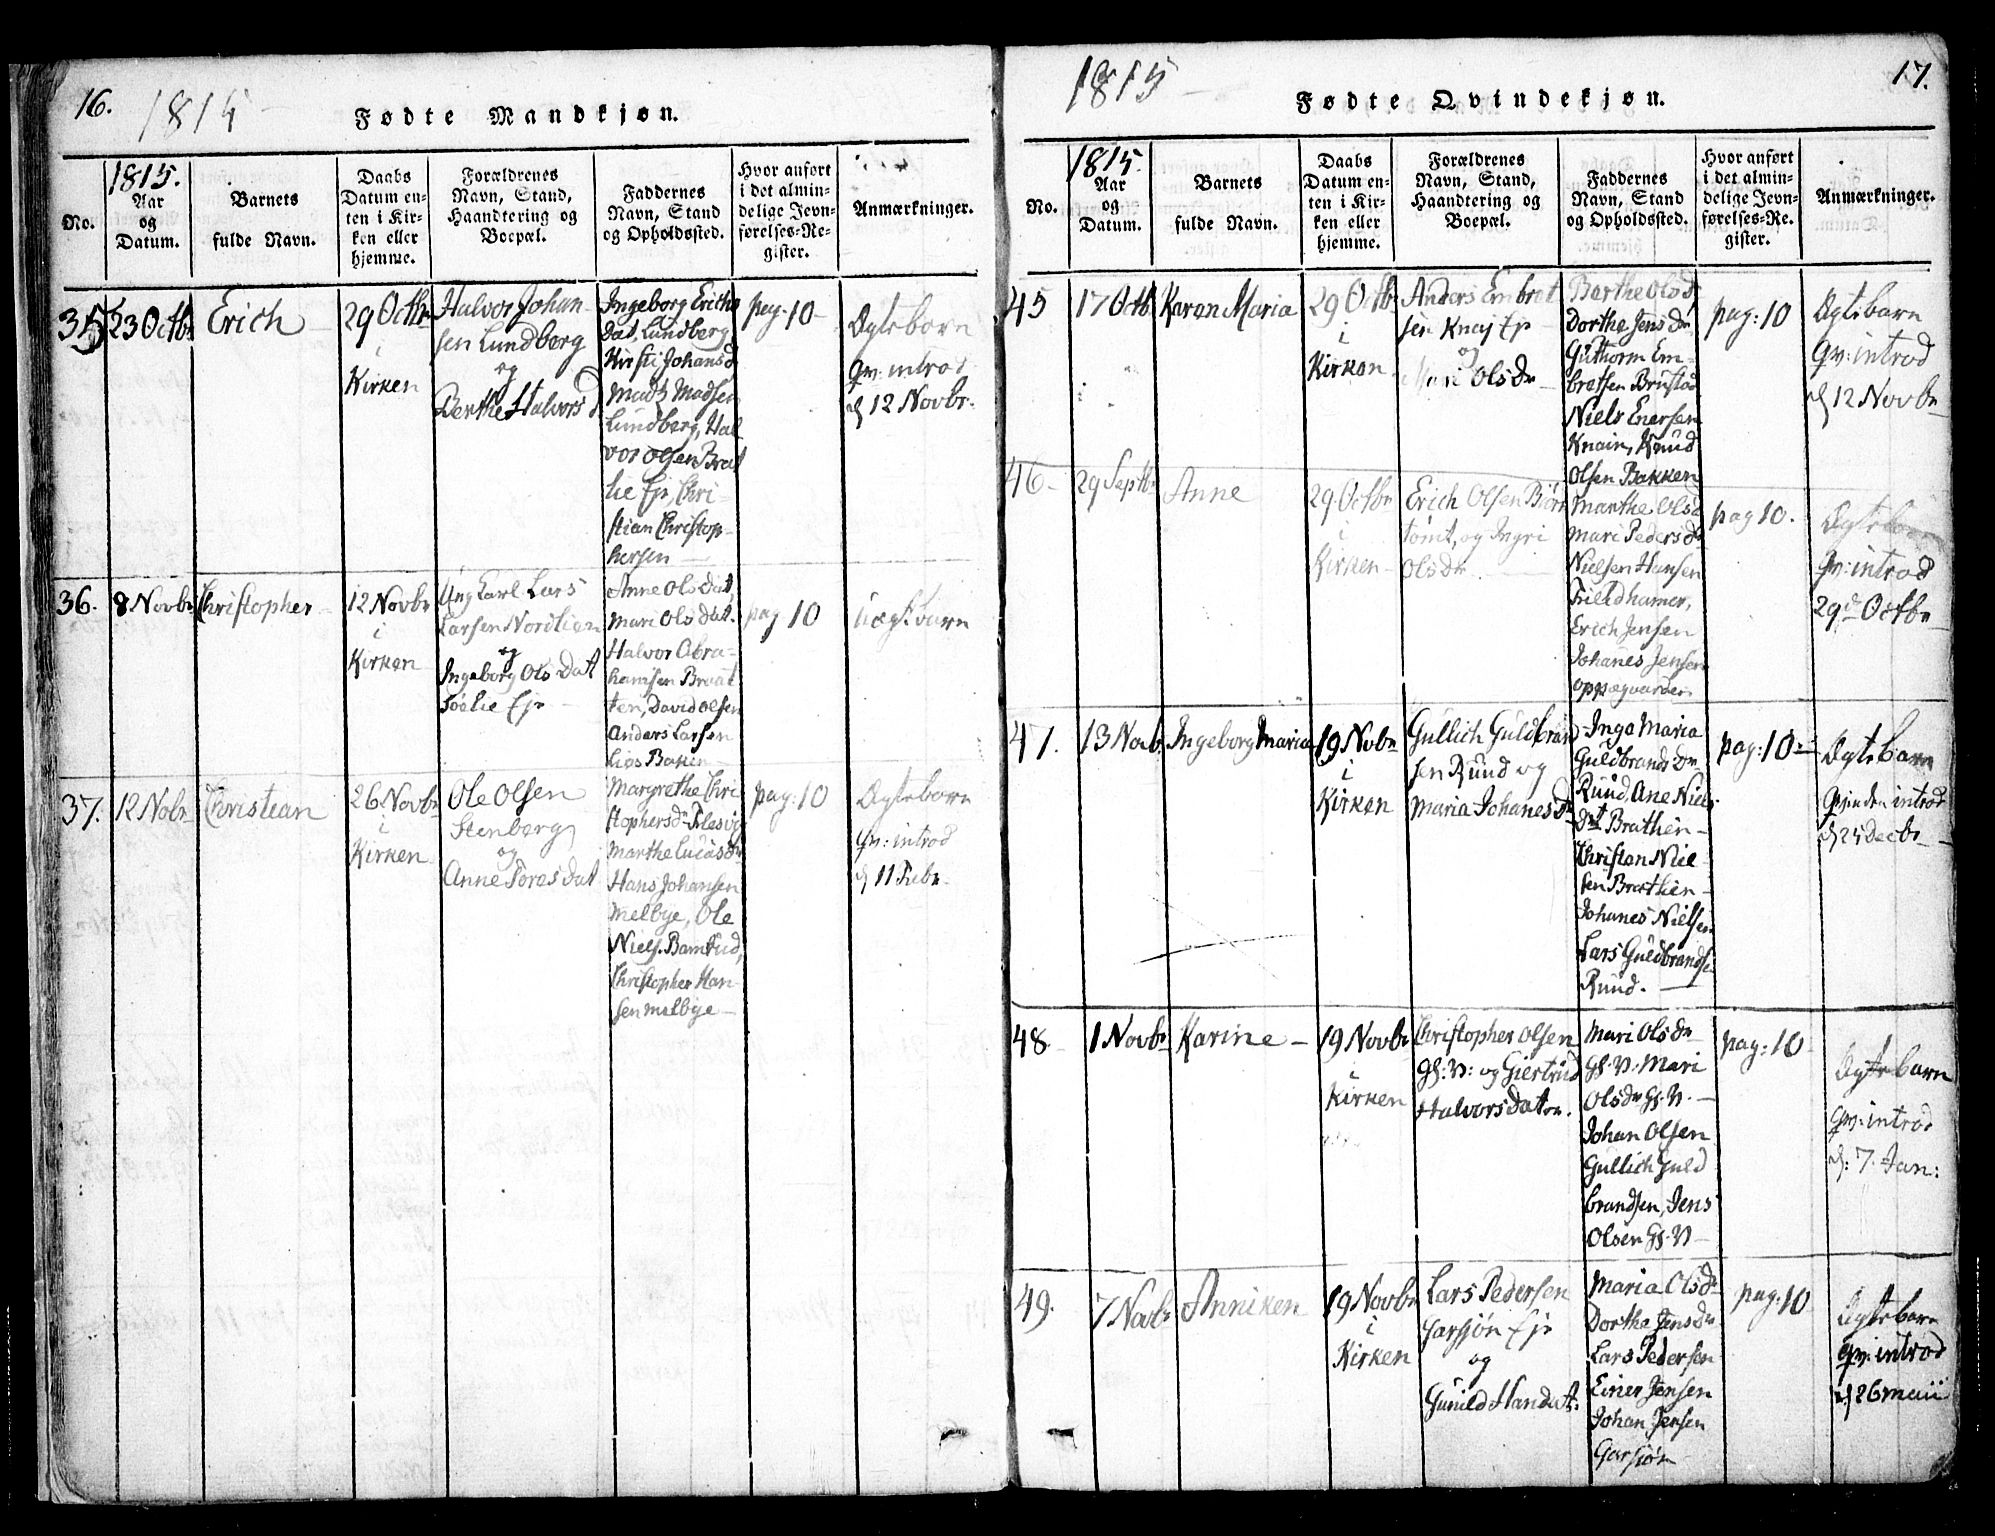 16.
1815
Fødte Mandkjøn.
No.
1815.
Aar
og
Datum.
Barnets
fulde Navn.
Daabs
Datum en-
ten i Kir-
ken eller
hjemme.
Forældrenes
Navn, Stand,
Haandtering og
Boepæl.
Faddernes
Navn, Stand
og Opholdssted.
Hvor anført
i det almin-
delige Jevn-
førelses-Re-
gister.
Anmærkninger.
35
23 Octbr
Erich
29 Octbr
i
Kirken
Halvor Johan-
sen Lundberg
og
Berthe Halvorsd
Ingeborg Erichs
dat, Lundberg
Kirsti Johansd
Madtz Madsen
Lundberg, Hal-
vor Olsen Brat
lie Eje, Chri-
stian Christop-
hersen
pag. 10
Ægtebarn
Qv: introd
d 12 Novbr.
36.
8 Novbr
Christopher
12 Novbr
i
Kirken
Ung Karl Lars
Larsen Nordlien
og
Ingeborg Ols Dat
Søelie Eje
Anne Olsdat,
Mari Olsdat.
Halvor Abra-
hamsen Braat
ten, David Olsen
Anders Larsen
Lies Baken
pag 10
Uægt barn
37.
12 Nobr
Christean
26 Novbr
i
Kirken
Ole Olsen
Stenberg
og
Anne Toresdat
Margrethe Chri
stophersdr
Marthe Lucasdr
Hans Johansen
Melbye, Ole
Niels. Bamrud,
Christopher Han
sen Melbye
pag: 10
Ægtebarn
Qv: introd
d 11 Febr.
1815
17.
Fødte Qvindekjøn.
No.
1815.
Aar
og
Datum.
Barnets
fulde Navn.
Daabs
Datum en-
ten i Kir-
ken eller
hjemme.
Forældrenes
Navn, Stand,
Haandtering og
Boepæl.
Faddernes
Navn, Stand
og Opholdssted.
Hvor anført
i det almin-
delige Jevn-
førelses-Re-
gister.
Anmærkninger.
45
17 Octb
Karen Maria
29 Octbr
i
Kirken
Anders Embret
sen Knaj Eje
og
Mari Olsdr
Barthe Olsd
Dorthe Jensdr
Guthorm Em-
bretsen Brustad
Niels Enersen
Knain, Knud
Olsen Bakken
pag: 10
Ægtebarn
Qv: introd
d 12 Novbr
46
29 Septbr
Anne
29 Octbr
i
Kirken
Erich Olsen Biørn
tomt, og Ingri
Olsdr
Marthe Olsd
Mari Pedersdr
Nielsen Hansen
Trieldhamer,
Erich Jensen
Johanes Jensen
oppegaarden
pag 10.
Ægtebarn
Qv: introd
29d Octbr
47.
13 Novb.
Ingeborg Maria
19 Nobr
i
Kirken
Gullich Guldbran
sen Ruud og
Maria Johanesdr
Inga Maria
Guldbrandsdr
Ruud, Ane Niels
dat Brathen
Christen Niel-
sen Brathen
Johanes Nielsen
Lars Guldbrandse
Ruud.
pag: 10
Ægtebarn
Qvinden introd
d 25 Decbr
48
1 Novbr
Karine
19 Novbr
i
Kirken
Christopher Olsen
Gs: V: og Giertrud
Halvorsdater.
Mari Olsdr
Gs: V: Mari
Olsdr Gs. V.
Johan Olsen
Gullich Guld
brandsen, Jens
Olsen Gs. V
pag: 10
Ægtebarn
Qv: introd
d: 7. Jan:
49.
7 Novbr
Anniken
19 Novbr
i
Kirken
Lars Pedersen
Garsjøn Eje
og
Gunild Handat.
Maria Olsdr
Dorthe Jensdr
Lars Pedersen
Einer Jensen
Johan Jensen
Garsjøn
pag: 10
Ægtebarn
Qv: introd
d 26 Maii